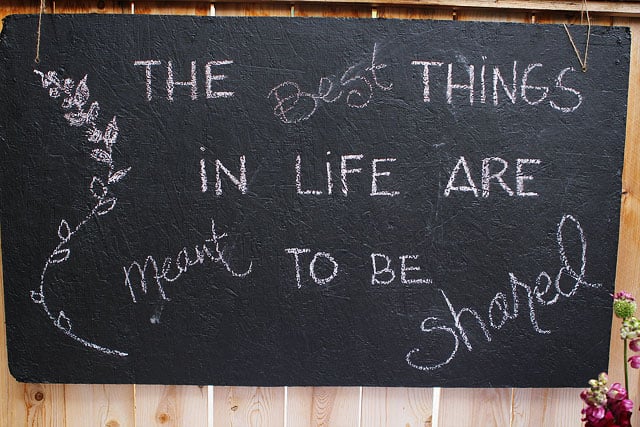 THE Best THiNGS
iN LiFE ARE
meant TO BE
shared